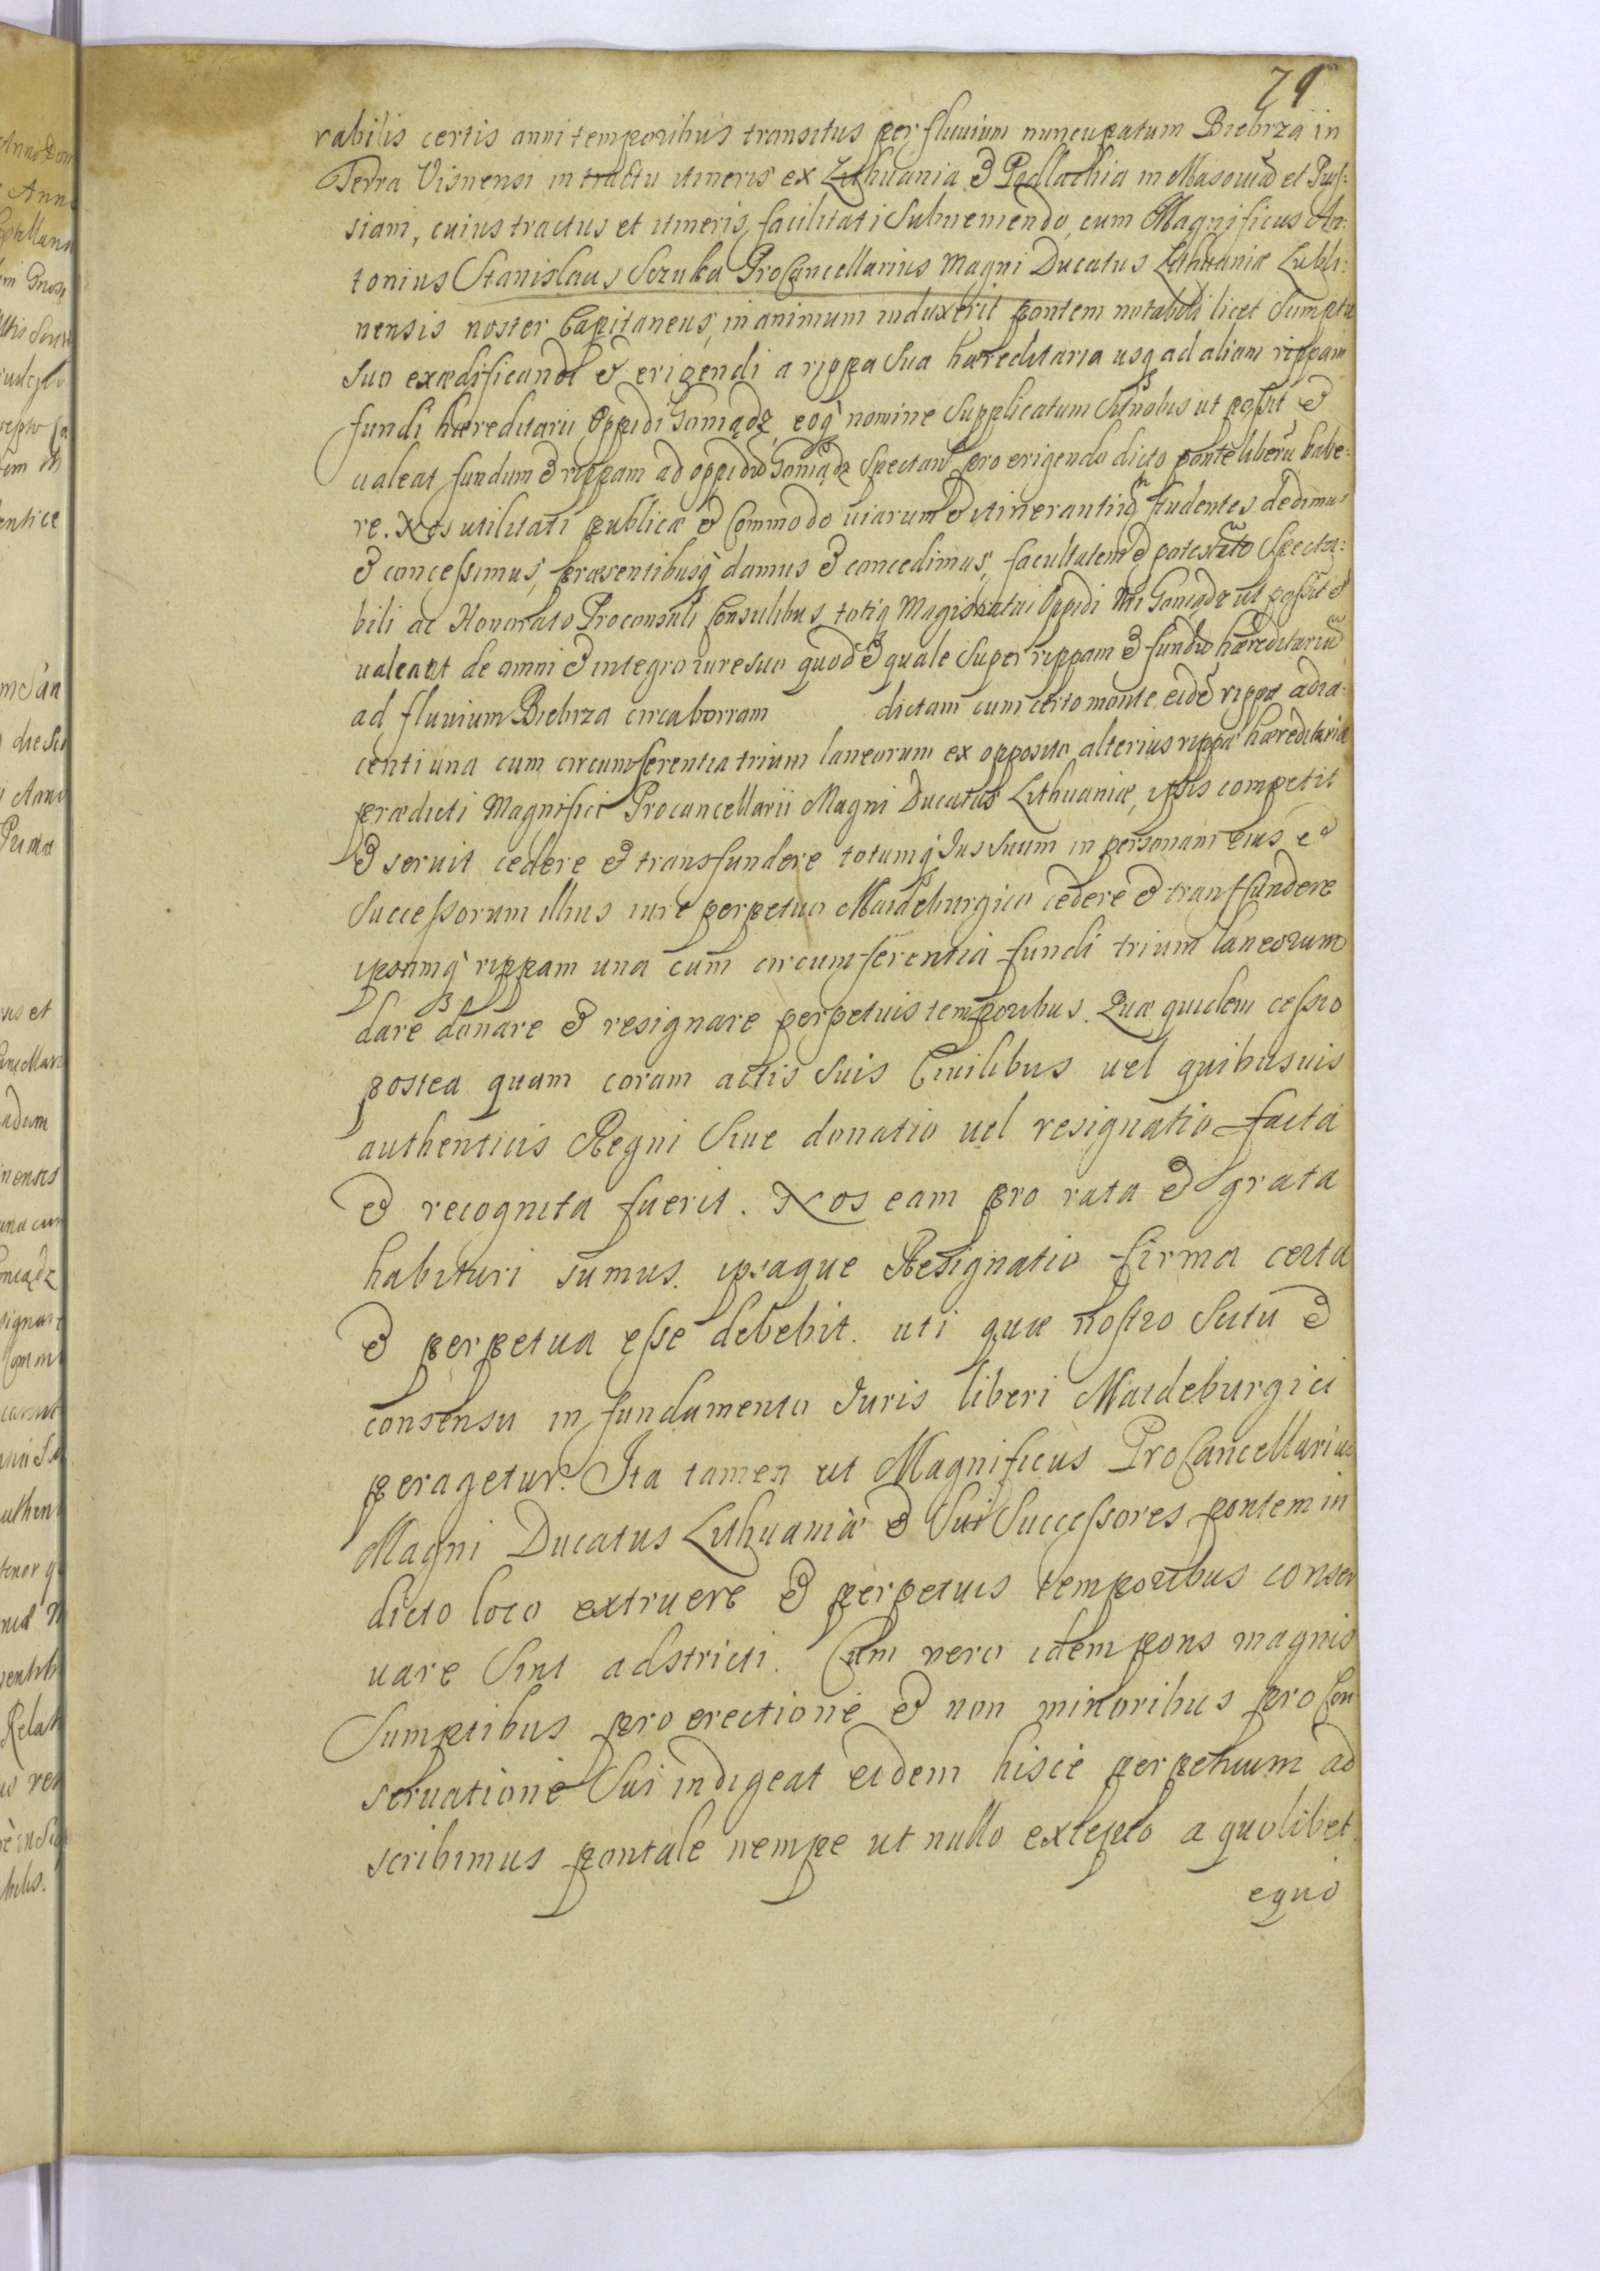 79
rabilis certis anni temporibus transitus per fluuium nuncupatum Biebrza in
Terra Visnensi in tractu itineris ex Lithuania & Podlachia in Masouiã et Prus:
siam, cuius tractus et itineris facilitati Subueniendo, cum Magnificus An:
tonius Stanislaus Sczuka ProCancellarius Magni Ducatus Lithuaniæ Lubli:
nensis noster Capitaneus, in animum induxerit pontem notabili licet Sumptu
Suo exædificandi & erigendi a rippa Sua hæreditaria usq ad aliam rippam
fundi hæreditarii Oppidi Goniądz, eoq nomine Supplicatum Sit nobis ut possit &
ualeat fundum & rippam ad oppidũ Goniądz Spectan pro erigendo dicto ponte liberũ habe:
re. Nos utilitati publicæ & Commodo uiarum & itinerantiũ studentes dedimus
& concessimus, præsentibusq damus & concedimus, facultatem & potestatẽ Specta:
bili ac Honorato Proconsuli Consulibus totiq Magistratui Oppidi Goniądz ut possit &
ualeant de omni & integro iure suo quod & quale Super rippam & fundũ hæreditariũ
ad fluuium Biebrza circa borram dictam cum certo monte eidẽ rippæ adia:
centi una cum circumferentia trium laneorum ex opposito alterius rippæ hæreditariæ
prædicti Magnifici Procancellarii Magni Ducatus Lithuaniæ, ipsis competit
& seruit cedere & transfundere totumq Ius Suum in personam eius &
Successorum illius iure perpetuo Maideburgico cedere & transfundere
ipsamq rippam una cum circumferentia fundi trium laneorum
dare donare & resignare perpetuis temporibus. Quæ quidem cessio
postea quam coram actis Suis Ciuilibus uel quibusuis
authenticis Regni Siue donatio uel resignatio facta
& recognita fuerit. Nos eam pro rata & grata
habituri sumus. ipsaque Resignatio firma certa
& perpetua esse debebit. uti quæ nostro Scitu &
consensu in fundamento Iuris liberi Maideburgici
peragetur. Ita tamen ut Magnificus ProCancellarius
Magni Ducatus Lithuaniæ & Sui Successores pontem in
dicto loco extruere & perpetuis temporibus conser
uare Sint adstricti. Cum vero idem pons magnis
Sumptibus pro erectione & non minoribus pro Con
seruatione Sui indigeat eidem hisce perpetuum ad
scribimus pontale nempe ut nullo excepto a quolibet
equo